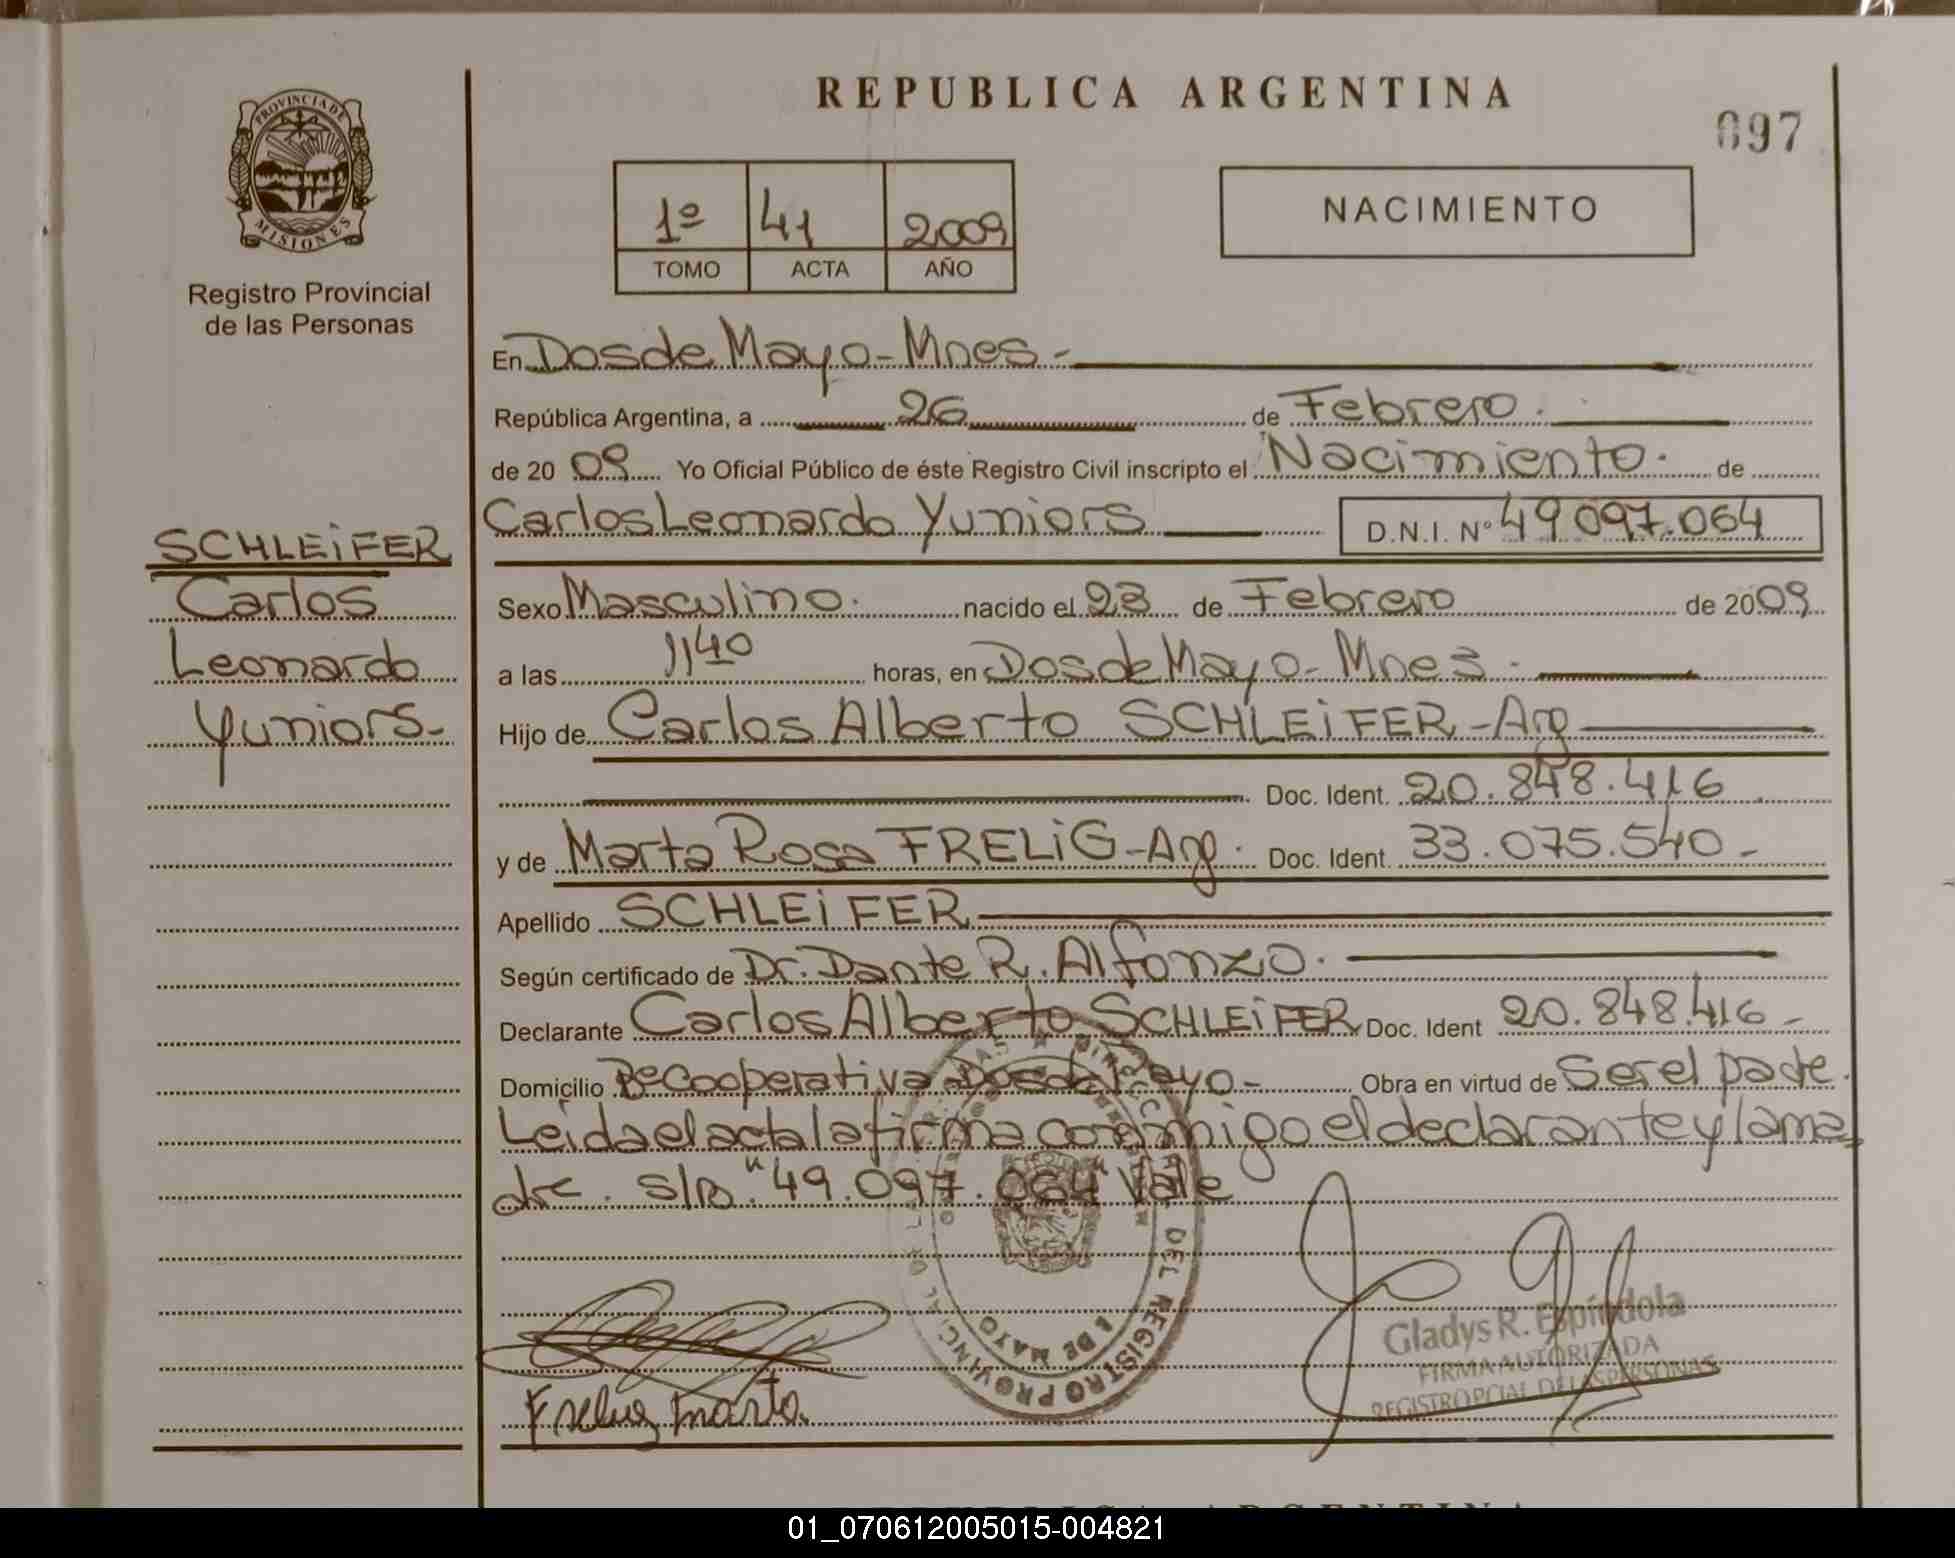 REPUBLICA ARGENTINA
097
PROVINCIA DE
MISIONES
Registro Provincial
de las Personas
1º 41 2009
TOMO ACTA AÑO
NACIMIENTO
En Dos de Mayo - Mnes -
República Argentina, a 26 de Febrero.
de 20 09 Yo Oficial Público de éste Registro Civil inscripto el Nacimiento. de
Carlos Leonardo Yuniors D.N.I. Nº 49.097.064
SCHLEiFER
Carlos
Leonardo
Yuniors-
Sexo Masculino. nacido el 23 de Febrero de 2009
a las 1140 horas, en Dos de Mayo - Mnes.
Hijo de Carlos Alberto SCHLEiFER - Arg
Doc. Ident. 20.848.416
y de Marta Rosa FRELiG - Arg. Doc. Ident. 33.075.540 -
Apellido SCHLEiFER
Según certificado de Dr. Dante R. Alfonzo.
Declarante Carlos Alberto SCHLEiFER Doc. Ident 20.848.416 -
Domicilio Bº Cooperativa Dos de Mayo - Obra en virtud de Ser el padre.
Leida el acta la firma conmigo el declarante y la ma=
dre. s/B. "49.097.064" Vale
DEL REGISTRO PROVINCIAL DE
DE MAYO
Gladys R. Espíndola
FIRMA AUTORIZADA
REGISTRO PCIAL DE LAS PERSONAS
Frelig Marta.
REPUBLICA ARGENTINA
01_070612005015-004821